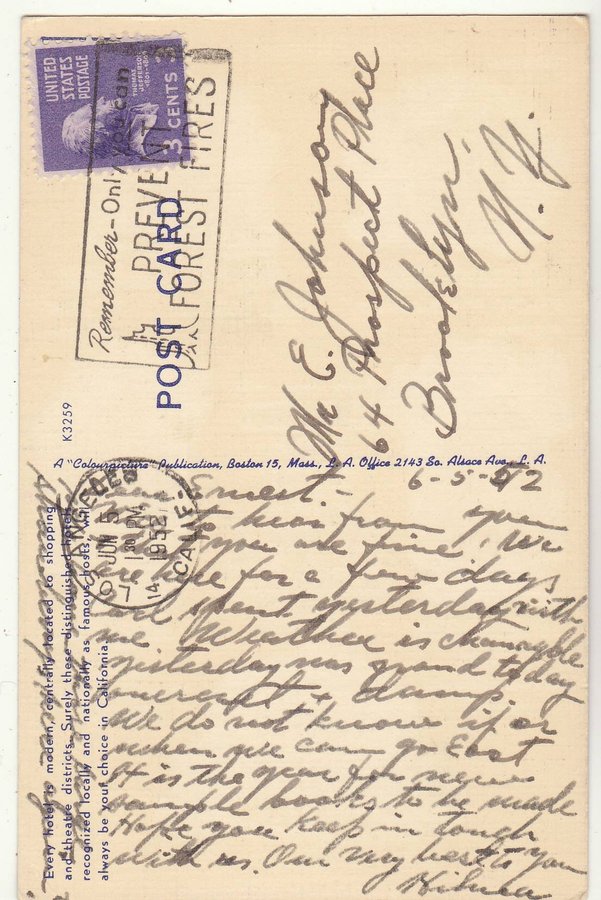 UNITED
STATES
POSTAGE
THOMAS
JEFFERSON
1801-1809
3 CENTS 3
Remember-Only you can
PREVENT
FOREST FIRES
POST CARD
Mr E. Johnson
64 Prospect Place
Brooklyn,
N.Y.
K3259
A "Colourpicture" Publication, Boston 15, Mass., L. A. Office 2143 So. Alsace Ave., L. A.
ANGELES
CALIF.
JUN 5
1 30 PM
1952
14
Every hotel is modern, centrally located to shopping
and theatre districts. Surely these distinguished hotels
recognized locally and nationally as famous hosts, will
always be your choice in California.
6-5-52
Dear Ernest-
to hear from you
you are fine. We
are here for a few days
and spent yesterday with
me Weather is changable
yesterday was grand today
overcast + damp
We do not know if or
when we can go East
It is the year for new
sample books to be made
Hope you keep in touch
with us. Our very best to you